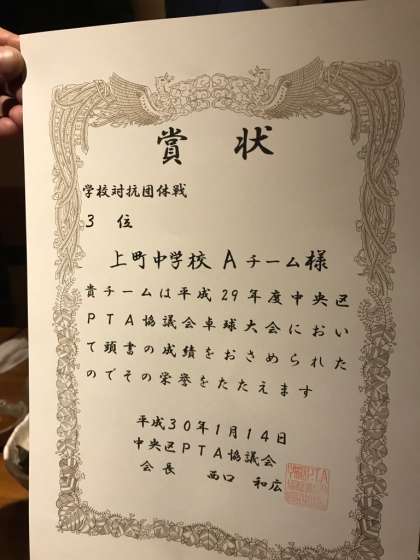 賞状
学校対抗団体戦
3 位
上町中学校 Aチーム様
貴チームは平成29年度中央区
PTA協議会卓球大会におい
て頭書の成績をおさめられた
のでその栄誉をたたえます
平成30年1月14日
中央区PTA協議会
会長 西口 和広